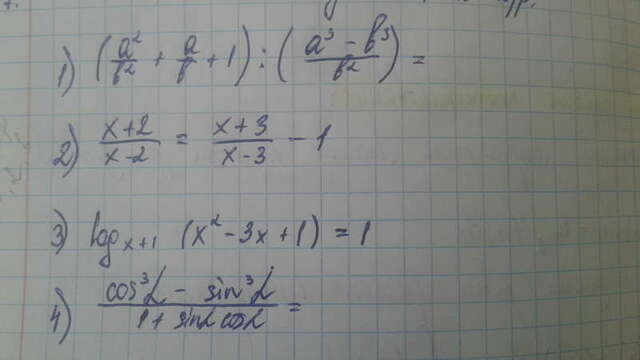 1) (a²/b² + a/b + 1) : ((a³ - b³)/b²) =
2) (x+2)/(x-2) = (x+3)/(x-3) - 1
3) log_{x+1} (x² - 3x + 1) = 1
4) (cos³α - sin³α)/(1 + sinα cosα) =